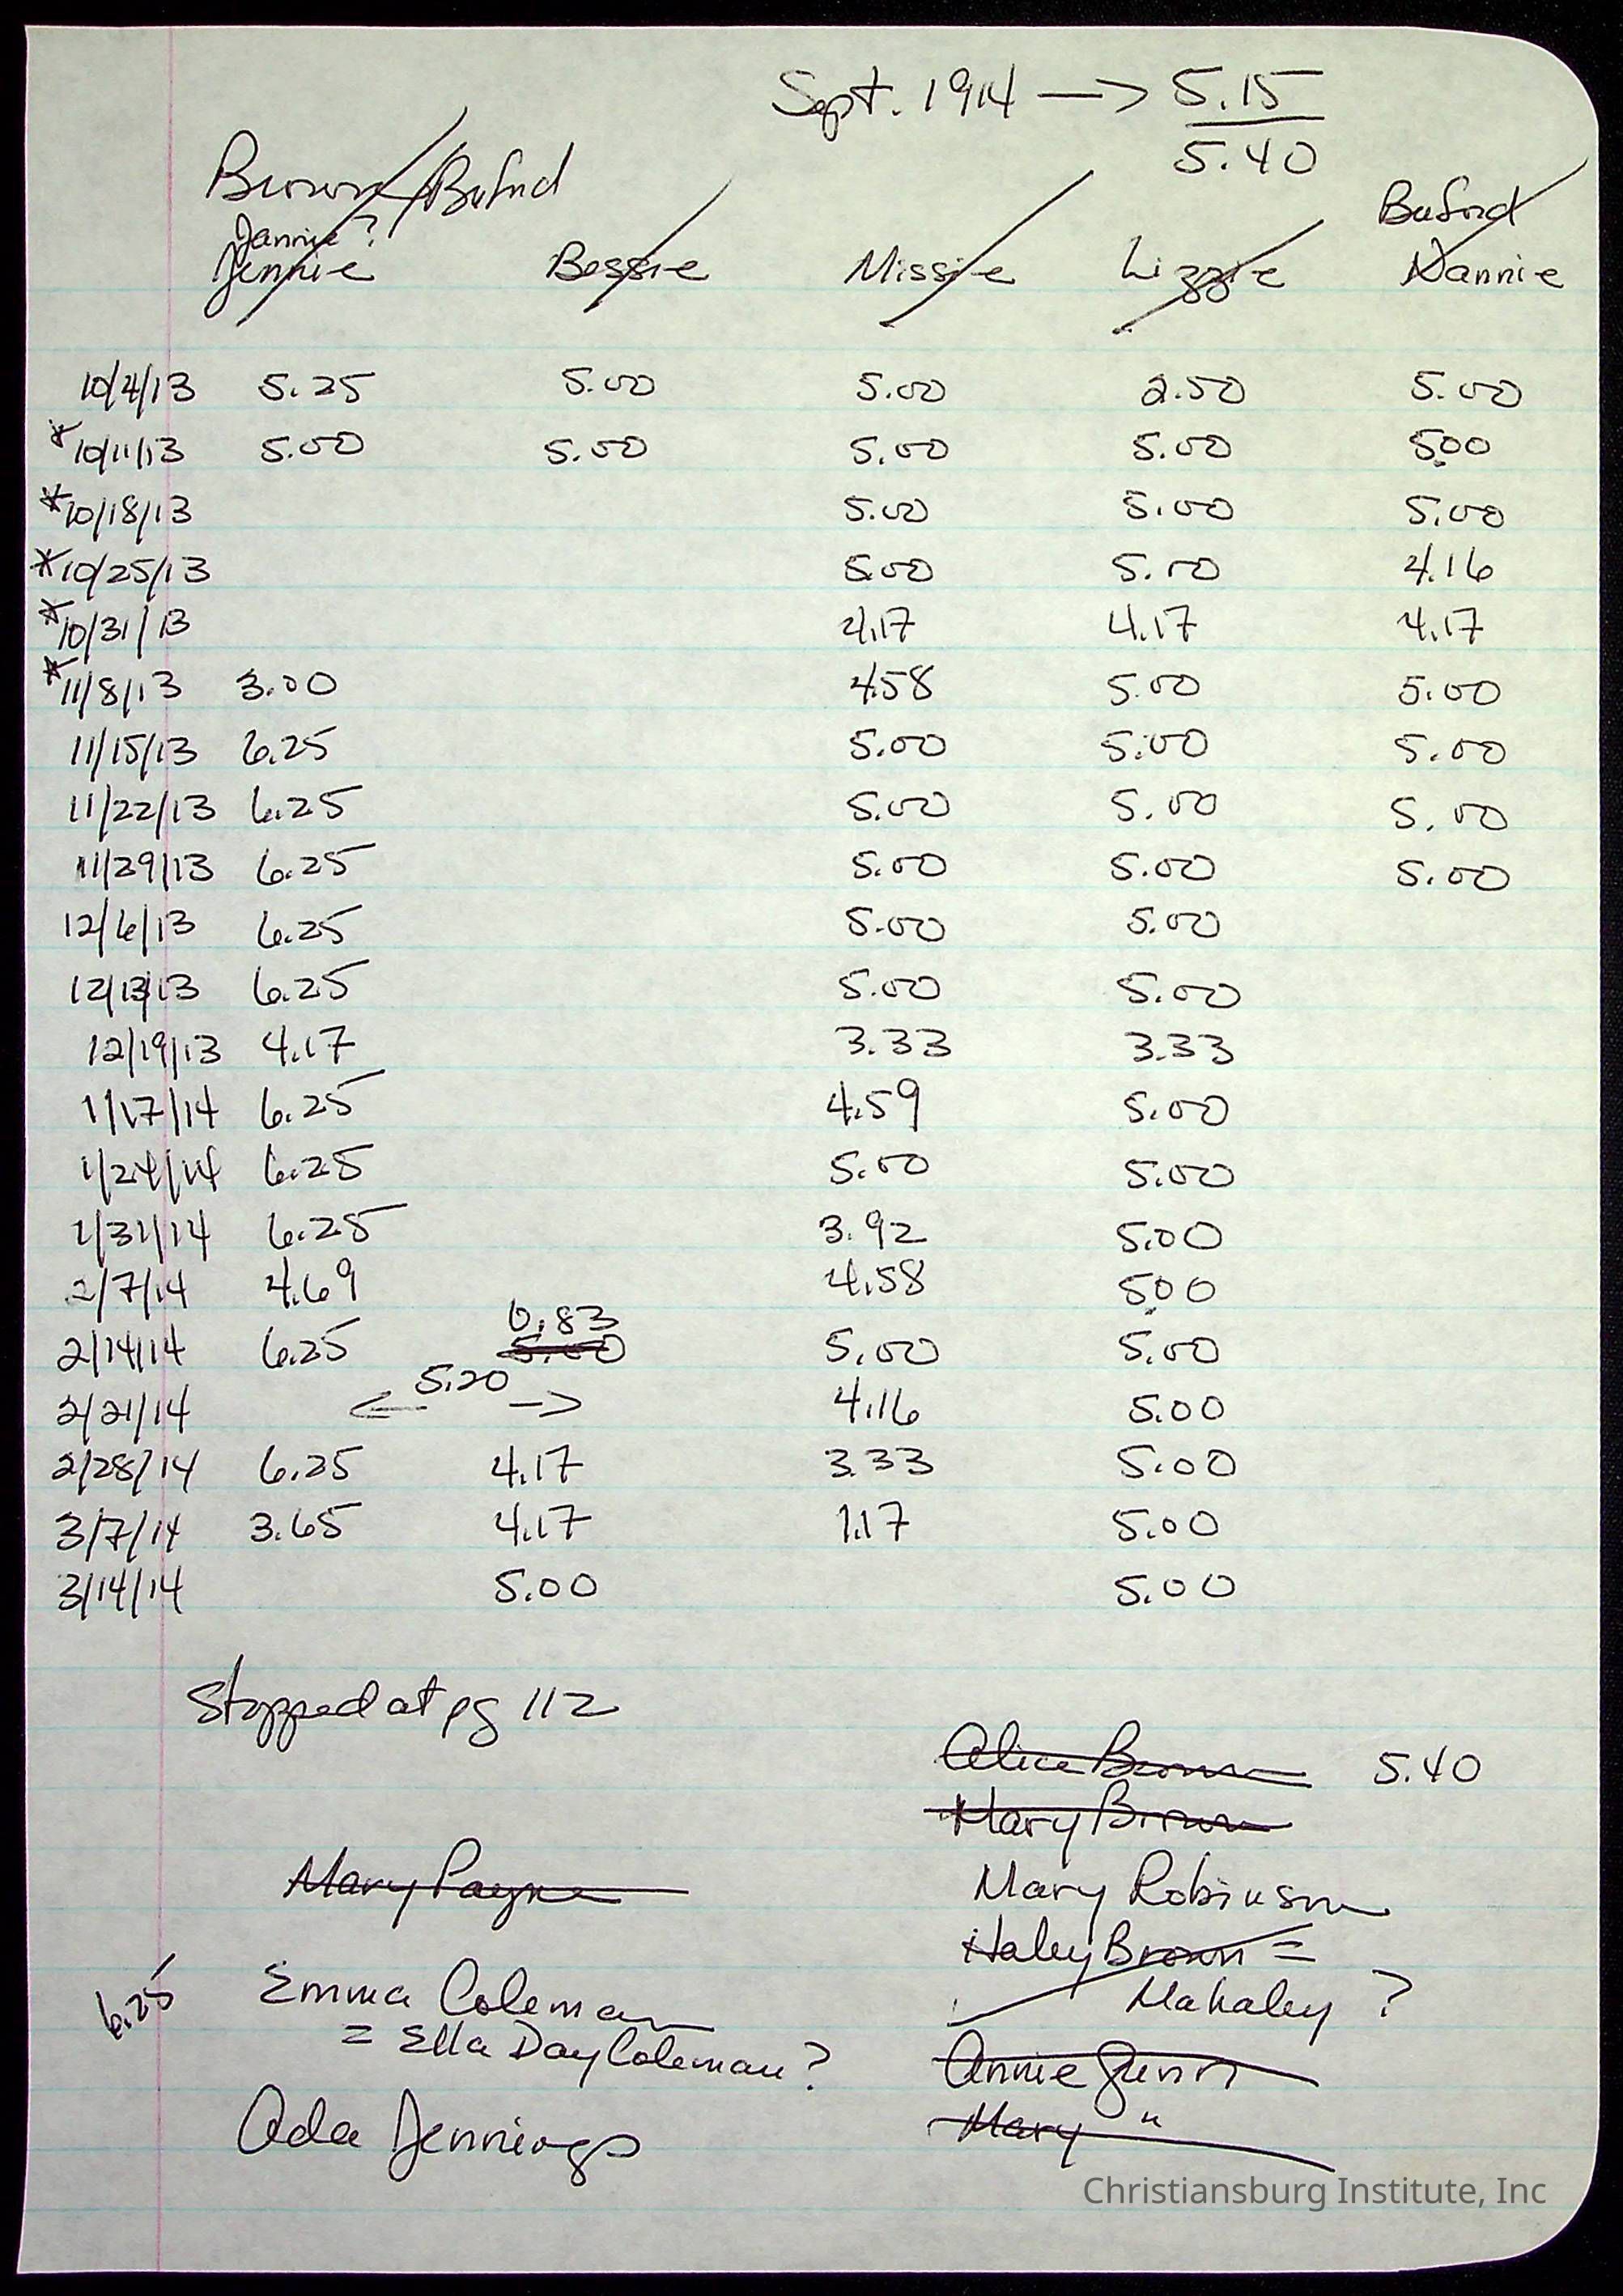 Sept. 1914 —> 5.15
5.40
Brown / Buford Buford
Jannie?
Jennie Bessie Missie Lizzie Nannie
10/4/13 5.25 5.00 5.00 2.50 5.00
*10/11/13 5.00 5.00 5.00 5.00 5.00
*10/18/13 5.00 5.00 5.00
*10/25/13 5.00 5.00 4.16
*10/31/13 4.17 4.17 4.17
*11/8/13 3.00 4.58 5.00 5.00
11/15/13 6.25 5.00 5.00 5.00
11/22/13 6.25 5.00 5.00 5.00
11/29/13 6.25 5.00 5.00 5.00
12/6/13 6.25 5.00 5.00
12/13/13 6.25 5.00 5.00
12/19/13 4.17 3.33 3.33
1/17/14 6.25 4.59 5.00
1/24/14 6.25 5.00 5.00
1/31/14 6.25 3.92 5.00
2/7/14 4.69 4.58 5.00
0.83
2/14/14 6.25 5.00 5.00 5.00
2/21/14 <— 5.20 —> 4.16 5.00
2/28/14 6.25 4.17 3.33 5.00
3/7/14 3.65 4.17 1.17 5.00
3/14/14 5.00 5.00
Stopped at pg 112
Alice Brown 5.40
Mary Brown
Mary Payne
Mary Robinson
Haley Brown =
Mahaley ?
6.25 Emma Coleman
= Ella Day Coleman?
Annie Gunn
Mary "
Ada Jennings
Christiansburg Institute, Inc